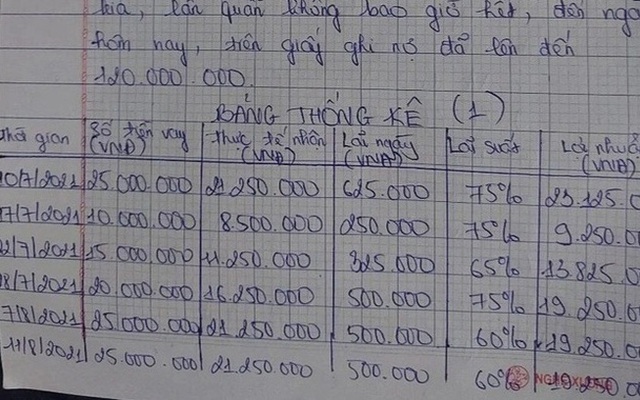 kia, lần quần không bao giờ hết, đến ngà
hôm nay, trên giấy ghi nợ đã lên đến
120.000.000.
BẢNG THỐNG KÊ (1)
Thời gian Số tiền vay (VNĐ) Thực tế nhận (VNĐ) Lãi ngày (VNĐ) Lãi suất Lợi nhuậ (VNĐ)
10/7/2021 25.000.000 21.250.000 625.000 75% 23.125.0
17/7/2021 10.000.000 8.500.000 250.000 75% 9.250.0
22/7/2021 15.000.000 11.250.000 325.000 65% 13.825.0
28/7/2021 20.000.000 16.250.000 500.000 75% 19.250.0
7/8/2021 25.000.000 21.250.000 500.000 60% 19.250.0
11/8/2021 25.000.000 21.250.000 500.000 60% 19.250.0